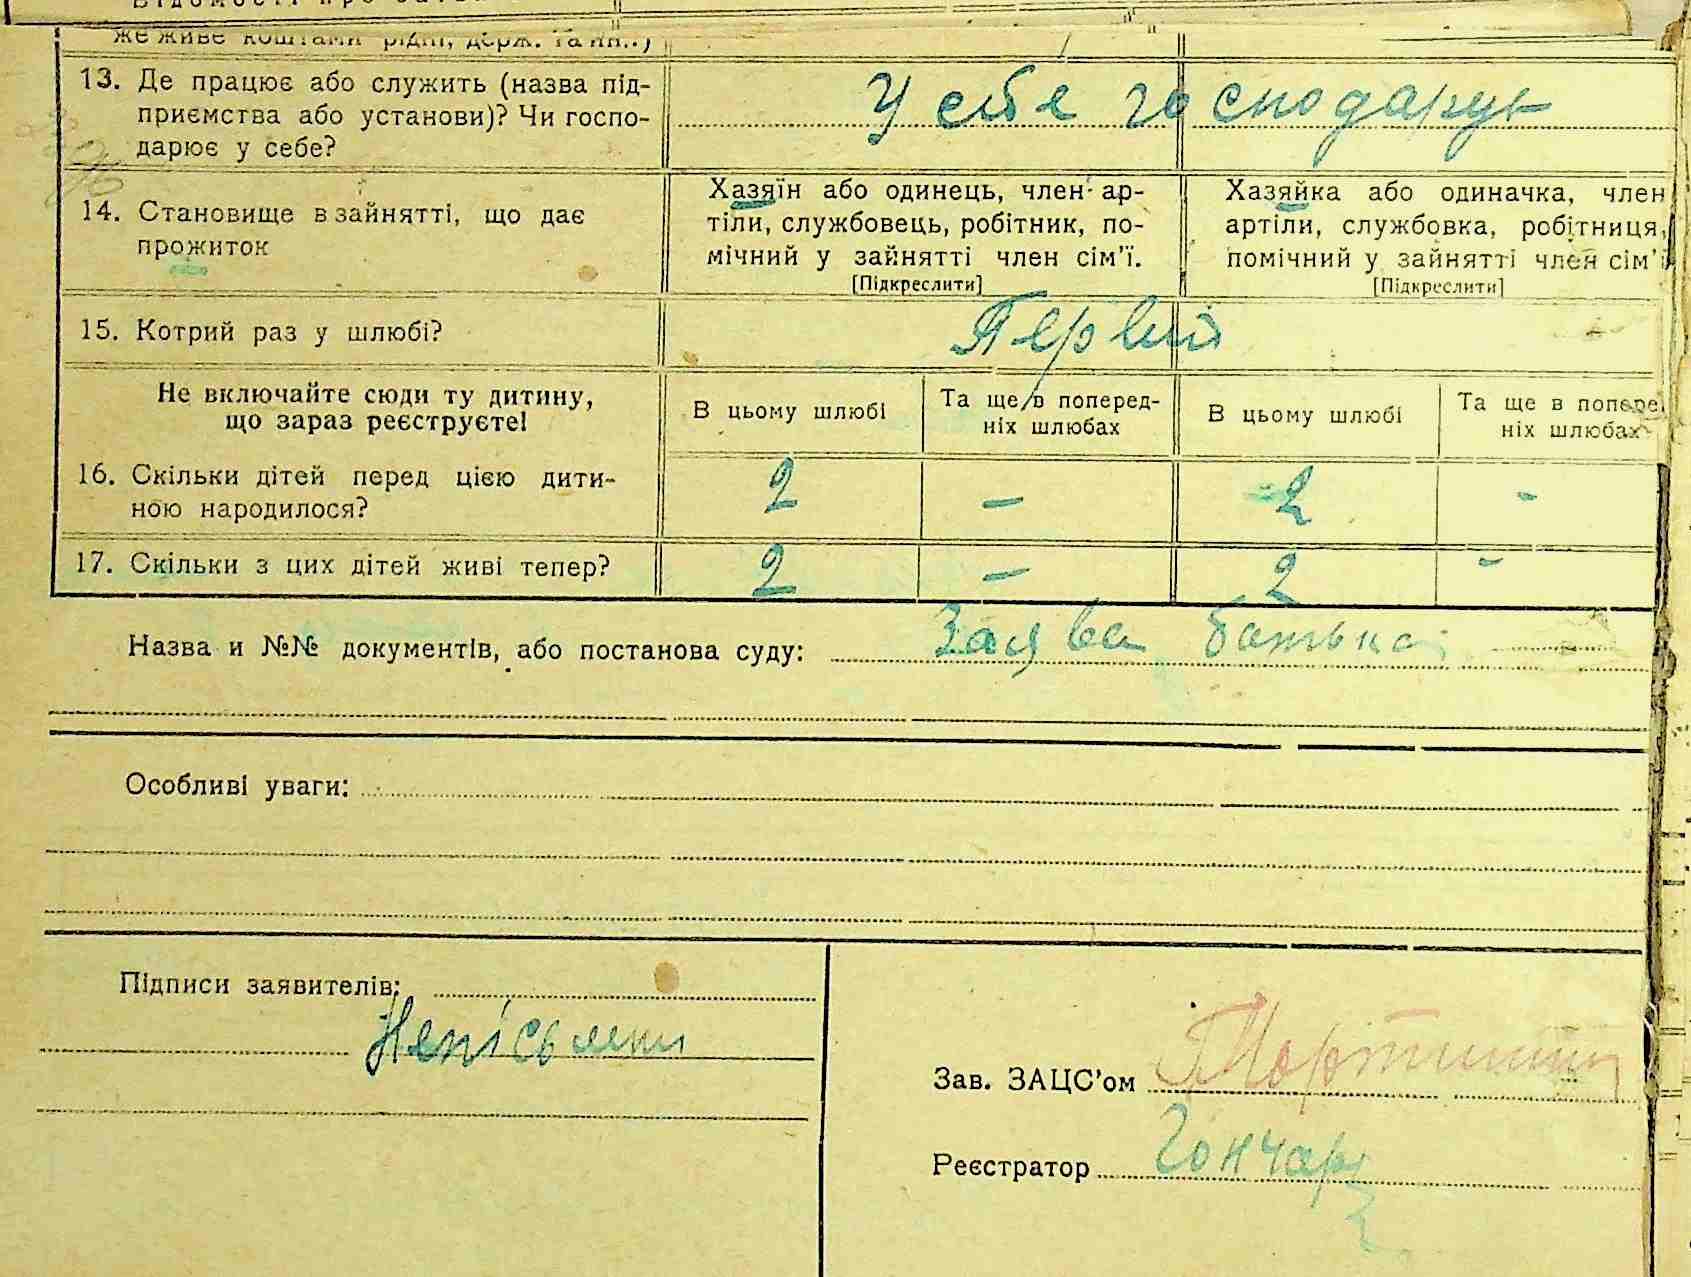 же живе коштами рідні, держ. та ин..)
13. Де працює або служить (назва під-
приємства або установи)? Чи госпо-
дарює у себе?
У себя господарує
14. Становище в зайнятті, що дає
прожиток
Хазяїн або одинець, член ар-
тіли, службовець, робітник, по-
мічний у зайнятті член сім'ї.
[Підкреслити]
Хазяйка або одиначка, член
артіли, службовка, робітниця,
помічний у зайнятті член сім'ї
[Підкреслити]
15. Котрий раз у шлюбі?
Первий
Не включайте сюди ту дитину,
що зараз реєструєте!
В цьому шлюбі
Та ще в поперед-
ніх шлюбах
В цьому шлюбі
Та ще в попере
ніх шлюбах
16. Скільки дітей перед цією дити-
ною народилося?
2 – 2 -
17. Скільки з цих дітей живі тепер?
2 – 2 -
Назва и №№ документів, або постанова суду: Заява батька
Особливі уваги:
Підписи заявителів:
Неписьмени
Зав. ЗАЦС'ом
Реєстратор Гончар